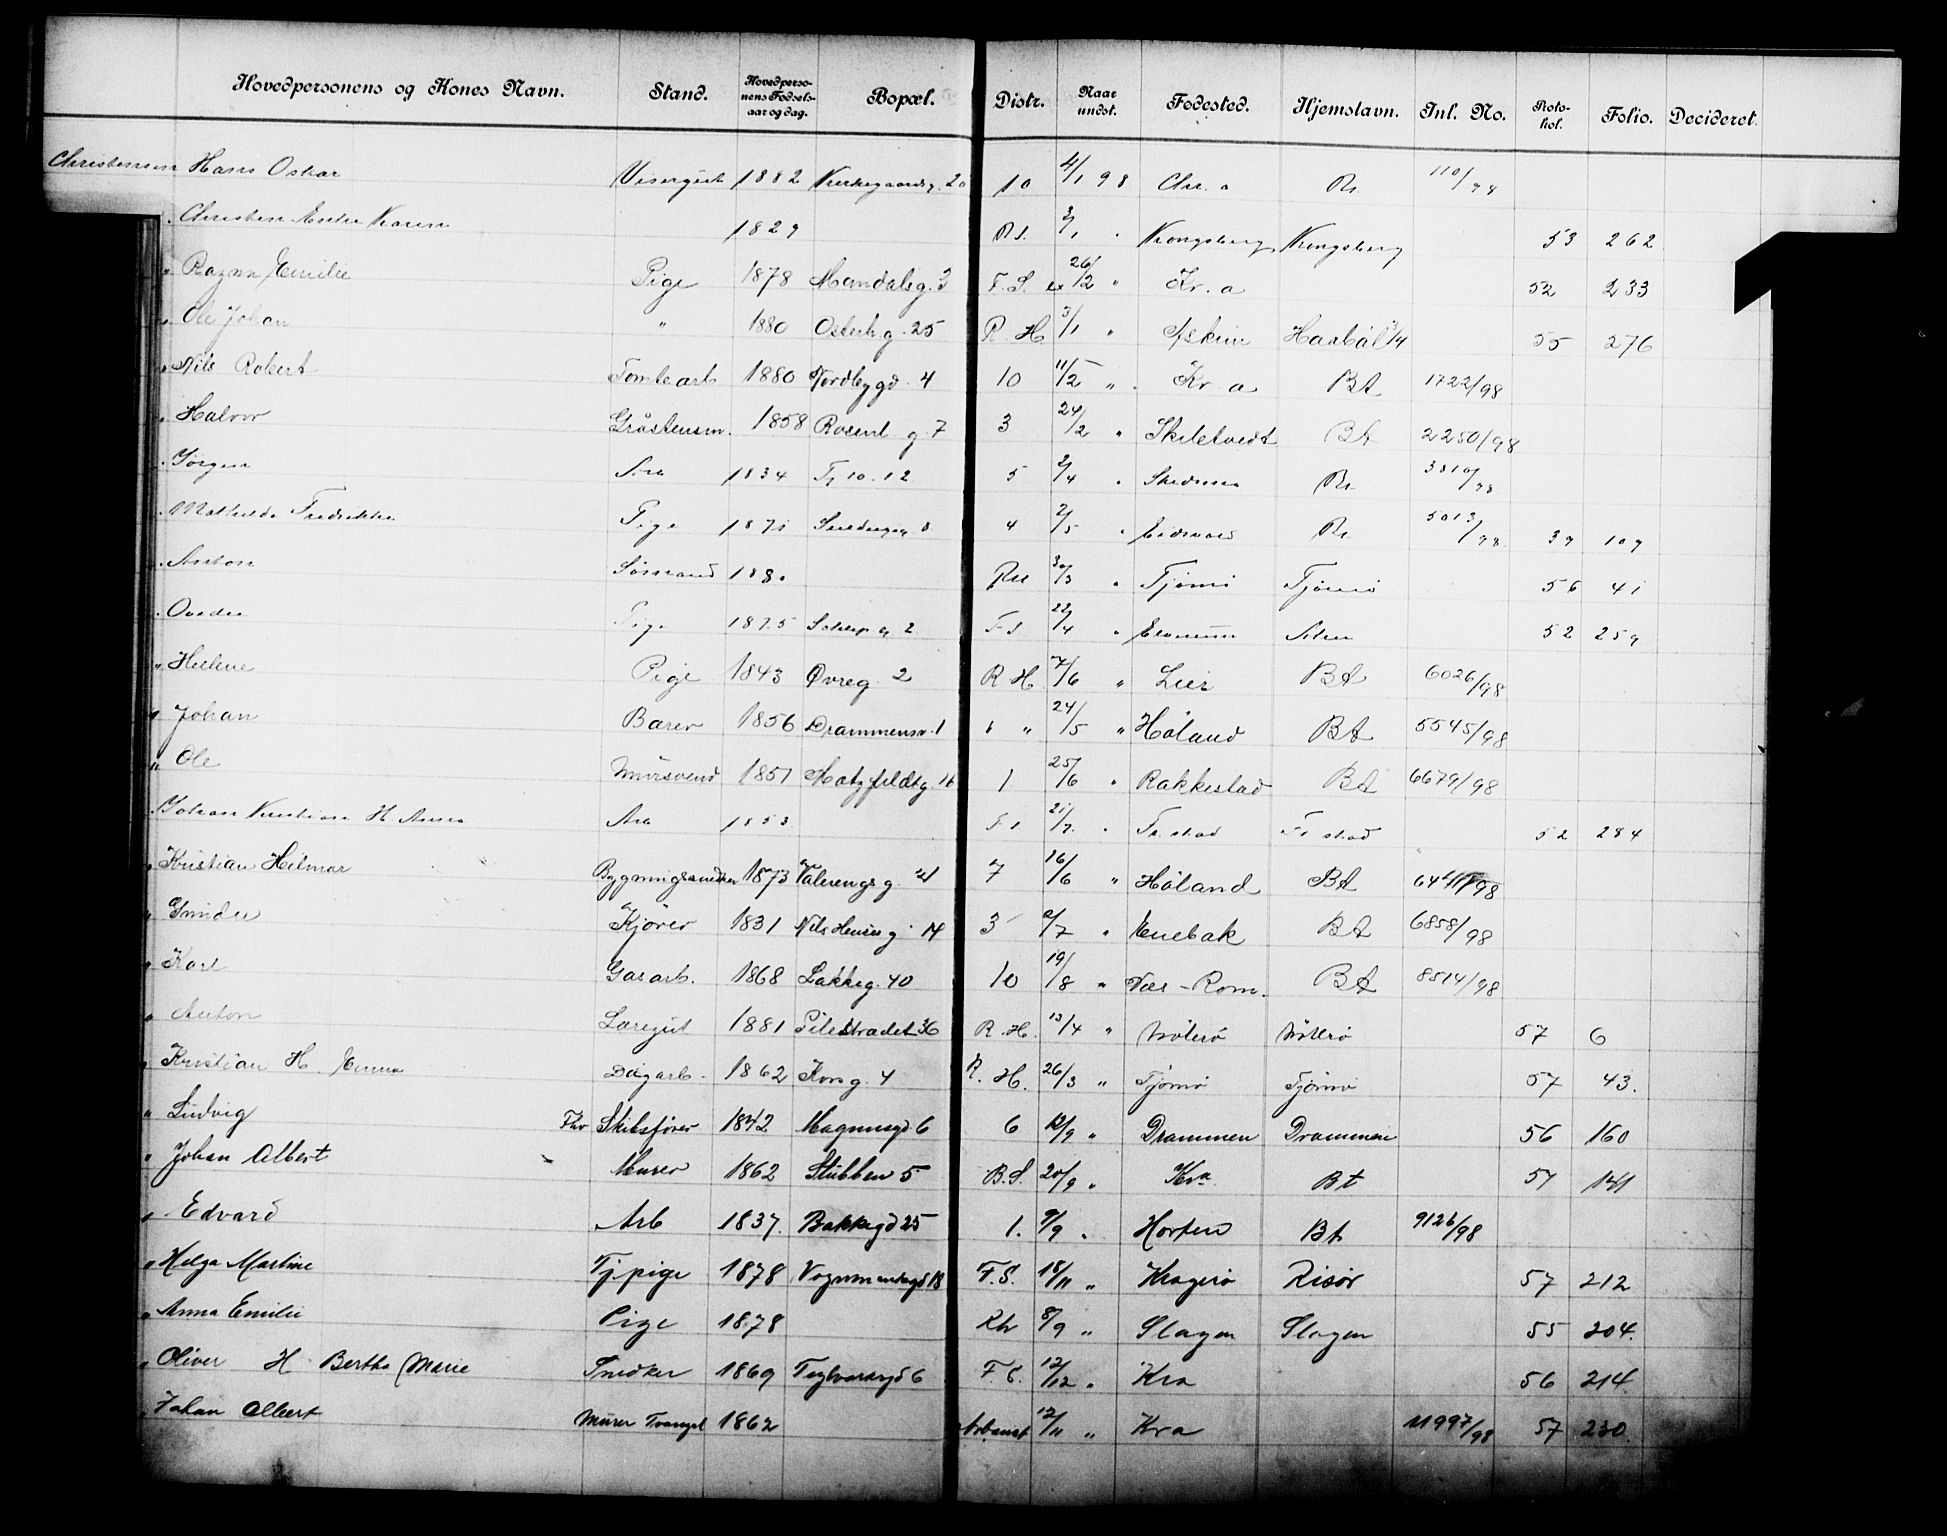 Hovedpersonens og Kones Navn. Stand. Hovedpersonens Fødselsaar og dag. Bopæl. Distr. Naar undst. Fødested. Hjemstavn. Inl. No. Protokol. Folio. Decideret.
Christensen Hans Oskar Visergut 1882 10 4/1 98 Chr. a 110/98
" 1829 3/1 " Kongsberg Kongsberg 53 262
" Ragna Emilie Pige 1878 Mandalsg. 3 F. S. 26/2 " Kr. a 52 233
" Ole Johan " 1880 Osterh. g. 25 R. H. 3/1 " Askim 55 276
" Nils Robert Tomtearb 1880 Nordbygd. 4 10 11/2 " Kr. a Bt 1722/98
" Halvor Gråstensm. 1858 Rosenl g. 7 3 24/2 " Skiletvedt Bt 2250/98
" Jørgen Arb 1834 5 2/4 " 3810/98
" Mathilde Fredrikke Pige 4 2/5 " Eidsvold 5013/98 39 109
" Anton Sømand 1880 RH 30/3 " Tjømø Tjømø 56 41
" Pige 1875 F S 22/4 " 52 259
" Helene Pige 1843 Øvreg. 2 R. H. 7/6 " Lier Bt 6026/98
" Johan Barer 1856 Drammensv. 1 " 24/5 " Høland Bt 5545/98
" Ole Mursvend 1851 1 25/6 " Rakkestad Bt 6679/98
" Johan Kristian H Anna Arb 1853 F S 21/7 " Fr. stad Fr. stad 52 284
" Kristian Hilmar Bygningssnedker 1873 Vålerengs g. 21 7 16/6 " Høland Bt
" Kjører 1831 3 2/7 " Enebak Bt 6858/98
" Karl Gasarb. 1868 Lakkeg. 40 10 19/8 " Nes - Rom. Bt 8514/98
" Anton Læregut 1881 Pilestrædet 36 R. H. 13/4 " Nøterø Nøterø 57 6
" Kristian H. Emma Dagarb. 1862 Kong. 4 R. H. 26/3 " Tjømø Tjømø 57 43.
" Ludvig Fhv Skibsfører 1842 Magnusgd 6 6 12/9 " Drammen Drammen 56 160
" Johan Albert Murer 1862 Stubben 5 B. S. 20/9 " Kra. Bt 57 141
" Edvard Arb 1837. Bakkegd 25 1. 9/9 " Horten Bt 9126/98
" Helga Martine Tj. pige 1878 Vognmandsgd 18 F. S. 18/11 " Kragerø Risør 57 212
" Anna Emilie Pige 1878 Rh 8/9 " Slagen Slagen 55 204.
" Oliver H Bertha Marie Snedker 1869 Teglverksgd 6 F. S. 12/12 " Kra 56 214.
" Johan Albert Murer Tvangsl 1862 Arbanst 12/11 " Kra 11997/98 57 230.